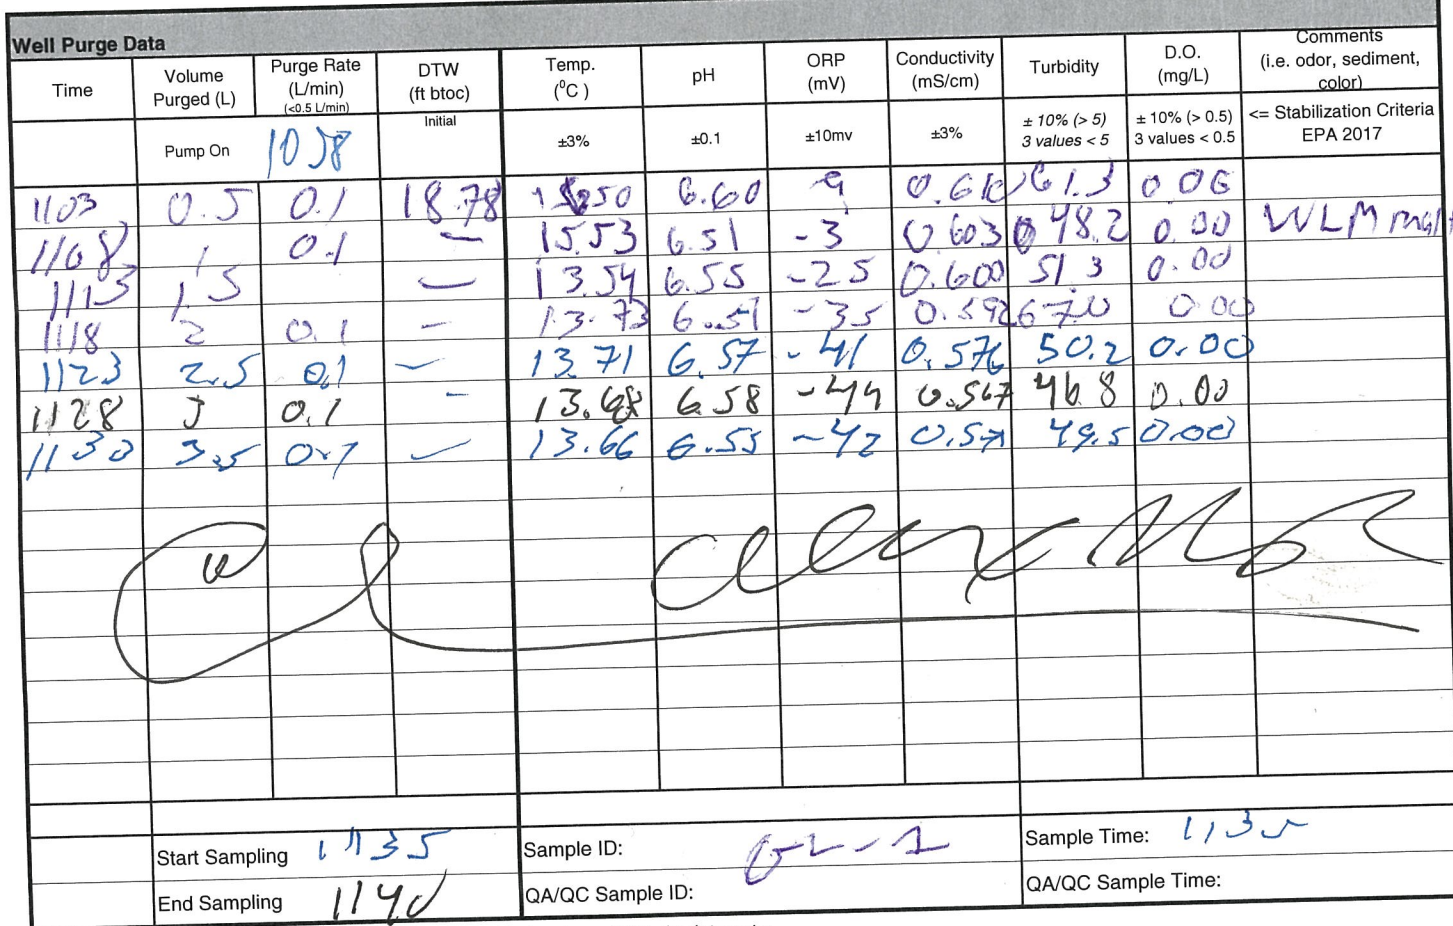 Well Purge Data
Time Volume Purged (L) Purge Rate (L/min) (<0.5 L/min) DTW (ft btoc) Temp. (⁰C ) pH ORP (mV) Conductivity (mS/cm) Turbidity D.O. (mg/L) Comments (i.e. odor, sediment, color)
Pump On 1058 Initial ±3% ±0.1 ±10mv ±3% ± 10% (> 5) 3 values < 5 ± 10% (> 0.5) 3 values < 0.5 <= Stabilization Criteria EPA 2017
1103 0.5 0.1 18.78 6.60 9 61.3 0.06
1108 1 0.1 – 15.53 6.51 -3 0.603 48.2 0.00 WLM
1113 1.5 – 13.54 6.55 -25 0.600 51.3 0.00
1118 2 0.1 – 13.73 -35 0.592 67.0 0.00
1123 2.5 0.1 – 13.71 6.57 -41 0.576 50.2 0.00
1128 3 0.1 – 13.68 6.58 -44 0.567 46.8 0.00
1130 3.5 0.1 – 13.66 6.55 -42 0.571 49.5 0.00
Start Sampling 1135 Sample ID: Sample Time: 1135
End Sampling 1140 QA/QC Sample ID: QA/QC Sample Time: